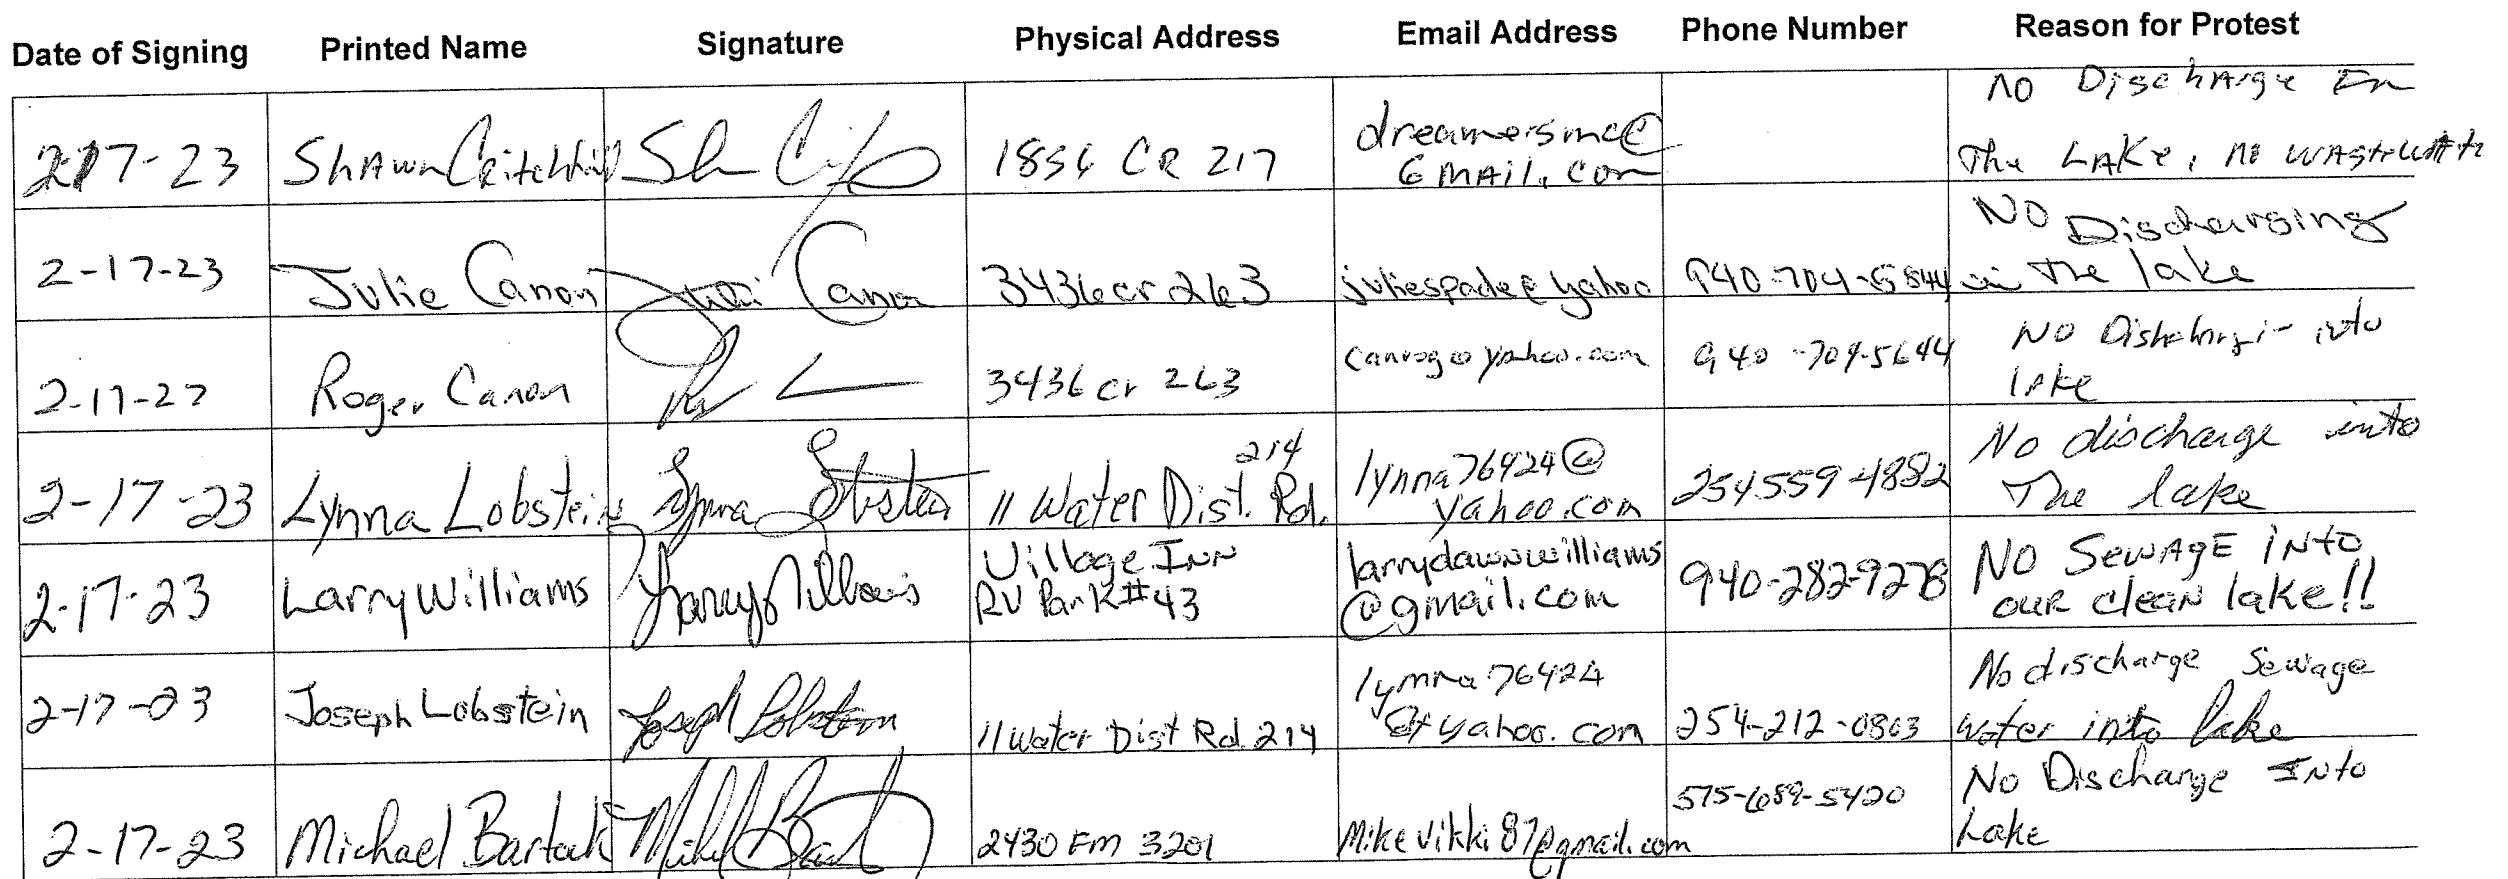 Date of Signing Printed Name Signature Physical Address Email Address Phone Number Reason for Protest
No Discharge In
2-17-23 Shawn 1856 CR 217 dreamersmc@
Gmail.com The Lake, no wastewate
2-17-23 Julie Canon Julie Canon 3436 cr 263 juliespade@yahoo 940-704-5844 NO Discharging
in The lake
2-17-23 Roger Canon 3436 cr 263 canrog@yahoo.com 940-704-5644 No into
lake
2-17-23 Lynna Lobstein Lynna Lobstein 11 Water Dist. 214 Rd. lynna76424@
yahoo.com 254 559-4882 No discharge into
The lake
2-17-23 Larry Williams Larry Williams Village Inn
RV Park #43 larrydawnwilliams
@gmail.com 940-282-9278 NO SEWAGE INto
our clean lake!!
2-17-23 Joseph Lobstein Joseph Lobstein 11 Water Dist Rd. 214 lynna76424
at yahoo.com 254-212-0803 No discharge Sewage
water into lake
2-17-23 Michael Bartosh 2430 FM 3201 Mikevikki87@gmail.com 575-689-5420 No Discharge Into
Lake